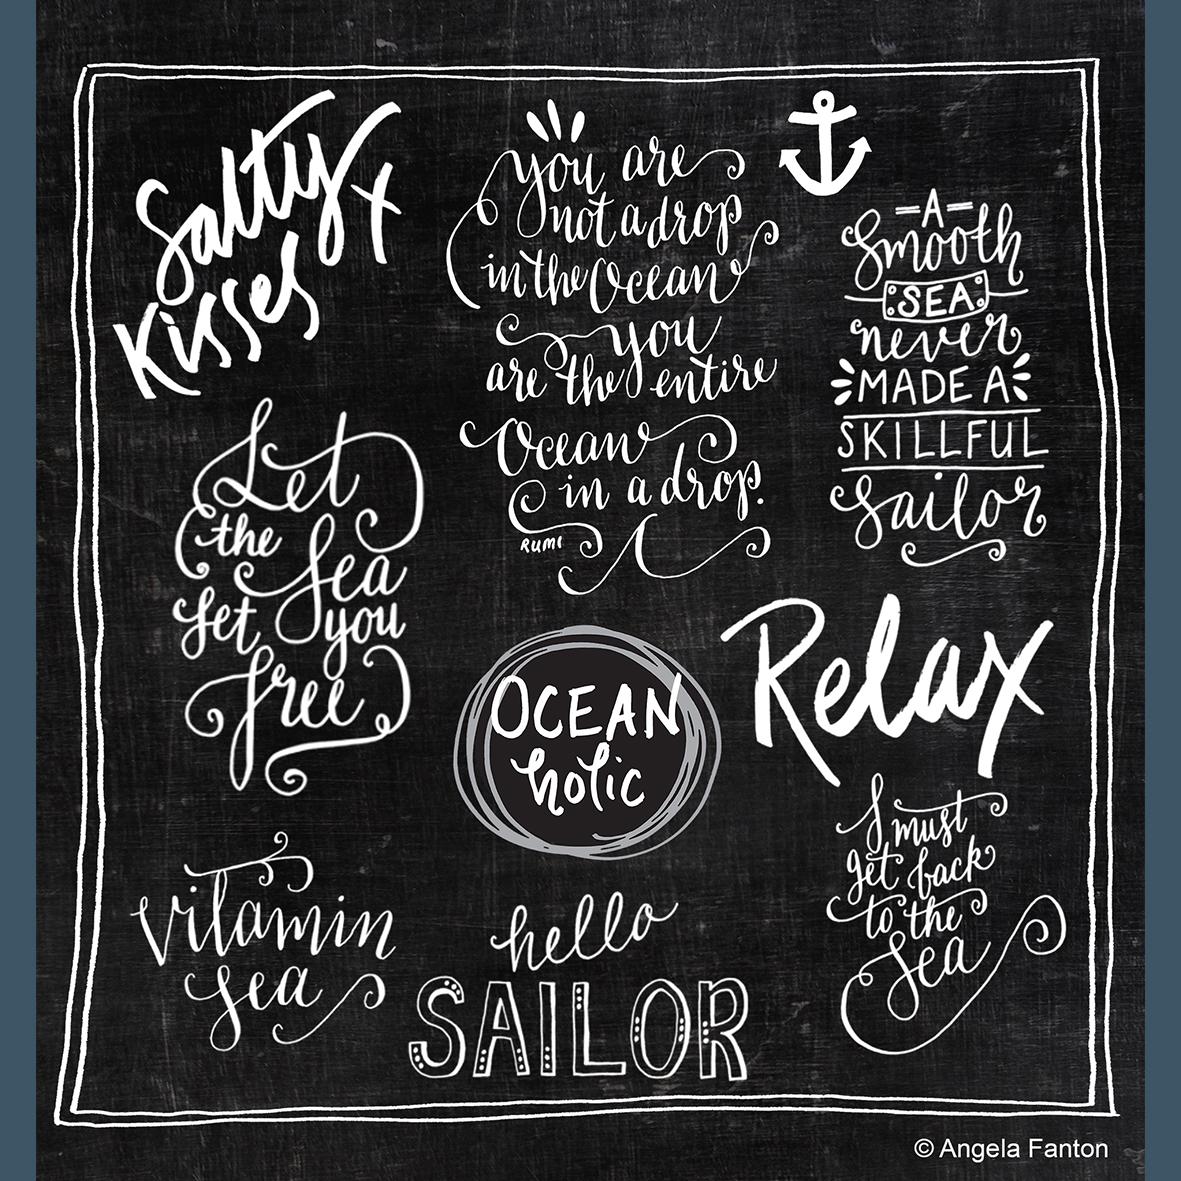 Salty
Kisses
x
you are
not a drop
in the Ocean
you
are the entire
Ocean
in a drop.
RUMI
A
Smooth
SEA
never
MADE A
SKILLFUL
Sailor
Let
the Sea
set you
free
OCEAN
holic
Relax
vitamin
sea
hello
SAILOR
I must
get back
to the
Sea
© Angela Fanton